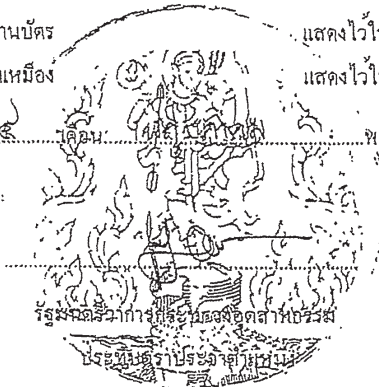 านบัตร แสดงไว้ใ
เหมือง แสดงไว้ใ
๕ เดือน พ
รัฐมนตรีว่าการกระทรวงอุตสาหกรรม
ประทับตราประจำตำแหน่ง